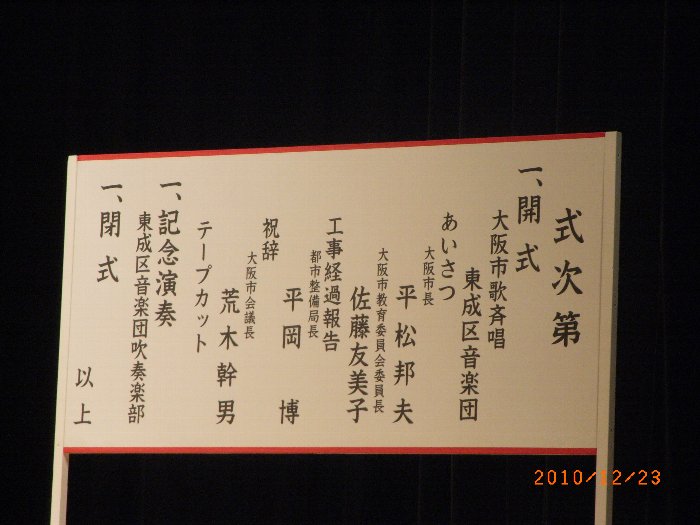 式次第
一、開式
大阪市歌斉唱
東成区音楽団
あいさつ
大阪市長
平松邦夫
大阪市教育委員会委員長
佐藤友美子
工事経過報告
都市整備局長
平岡 博
祝辞
大阪市会議長
荒木幹男
テープカット
一、記念演奏
東成区音楽団吹奏楽部
一、閉式
以上
2010/12/23